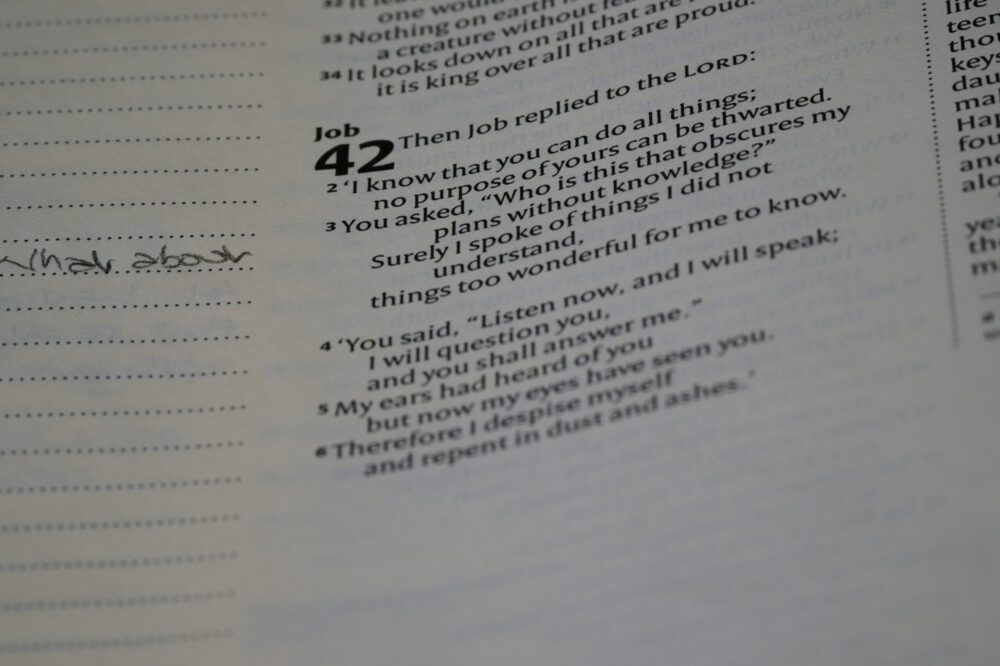 32 It leav
one would
33 Nothing on earth is
a creature without fea
34 It looks down on all that are
it is king over all that are proud.
Job
42 Then Job replied to the LORD:
2 ‘I know that you can do all things;
no purpose of yours can be thwarted.
3 You asked, “Who is this that obscures my
plans without knowledge?”
Surely I spoke of things I did not
understand,
things too wonderful for me to know.
4 ‘You said, “Listen now, and I will speak;
I will question you,
and you shall answer me.”
5 My ears had heard of you
but now my eyes have seen you.
6 Therefore I despise myself
and repent in dust and ashes.’
What about
life
teen
thou
keys
dau
mal
Hap
fou
and
alo
yea
th
m